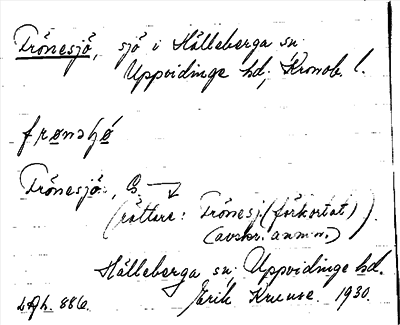 Trönesjö, sjö i Hälleberga sn
Uppvidinge hd, Kronob. l.
frønshǿ
Trönesjö.
(rättare: Trönesj. (förkortat)
(avskr. anm.)
Hälleberga sn. Uppvidinge hd.
Erik Kruuse. 1930.
886.